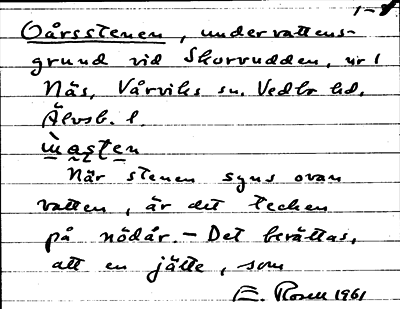 1-8
Oårsstenen, undervattens-
grund vid Skorvudden, nr 1
Näs, Vårviks sn. Vedbo hd.
Älvsb. l.
När stenen syns ovan
vatten, är det tecken
på nödår. - Det berättas,
att en jätte, som
E. Rosell 1961